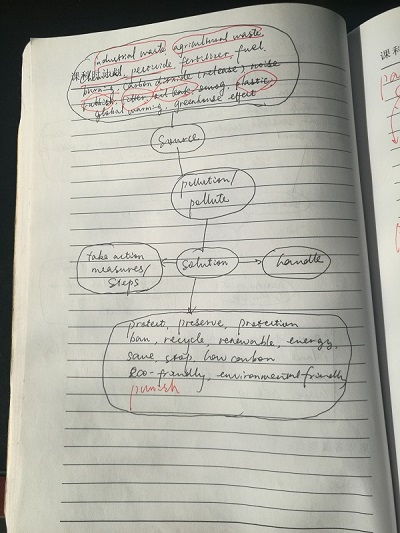 industrial waste agricultural waste
chemical, pesticide fertilizer, fuel
burning, carbon dioxide release, noise
rubbish, litter, oil leak, smog, plastic
global warming, greenhouse effect
课科
Source
pollution/
pollute
take action
measures/
steps
solution
handle
protect, preserve, protection
ban, recycle, renewable, energy,
save, stop, low carbon
eco-friendly, environmental friendly
punish
课科